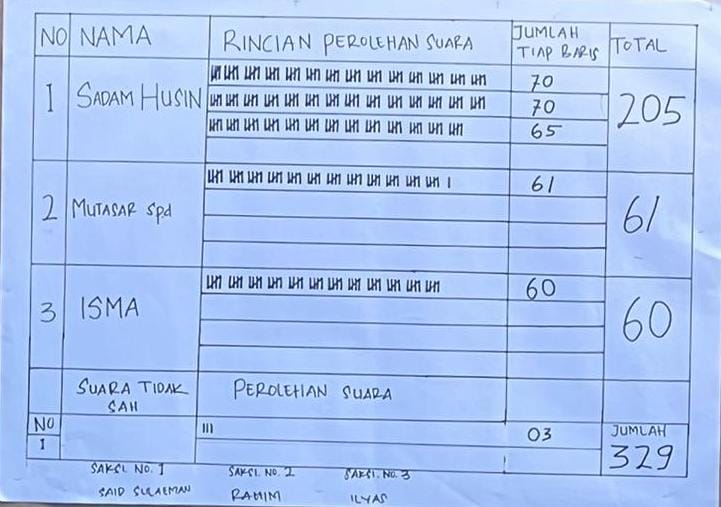 NO NAMA RINCIAN PEROLEHAN SUARA JUMLAH TIAP BARIS TOTAL
1 SADAM HUSIN 70 205
70
65
2 MUTASAR Spd 61 61
3 ISMA 60 60
SUARA TIDAK SAH PEROLEHAN SUARA
NO III 03 JUMLAH
1 329
SAKSI NO. 1 SAKSI. NO. 2 SAKSI. NO. 3
SAID SULAEMAN RAHIM ILYAS